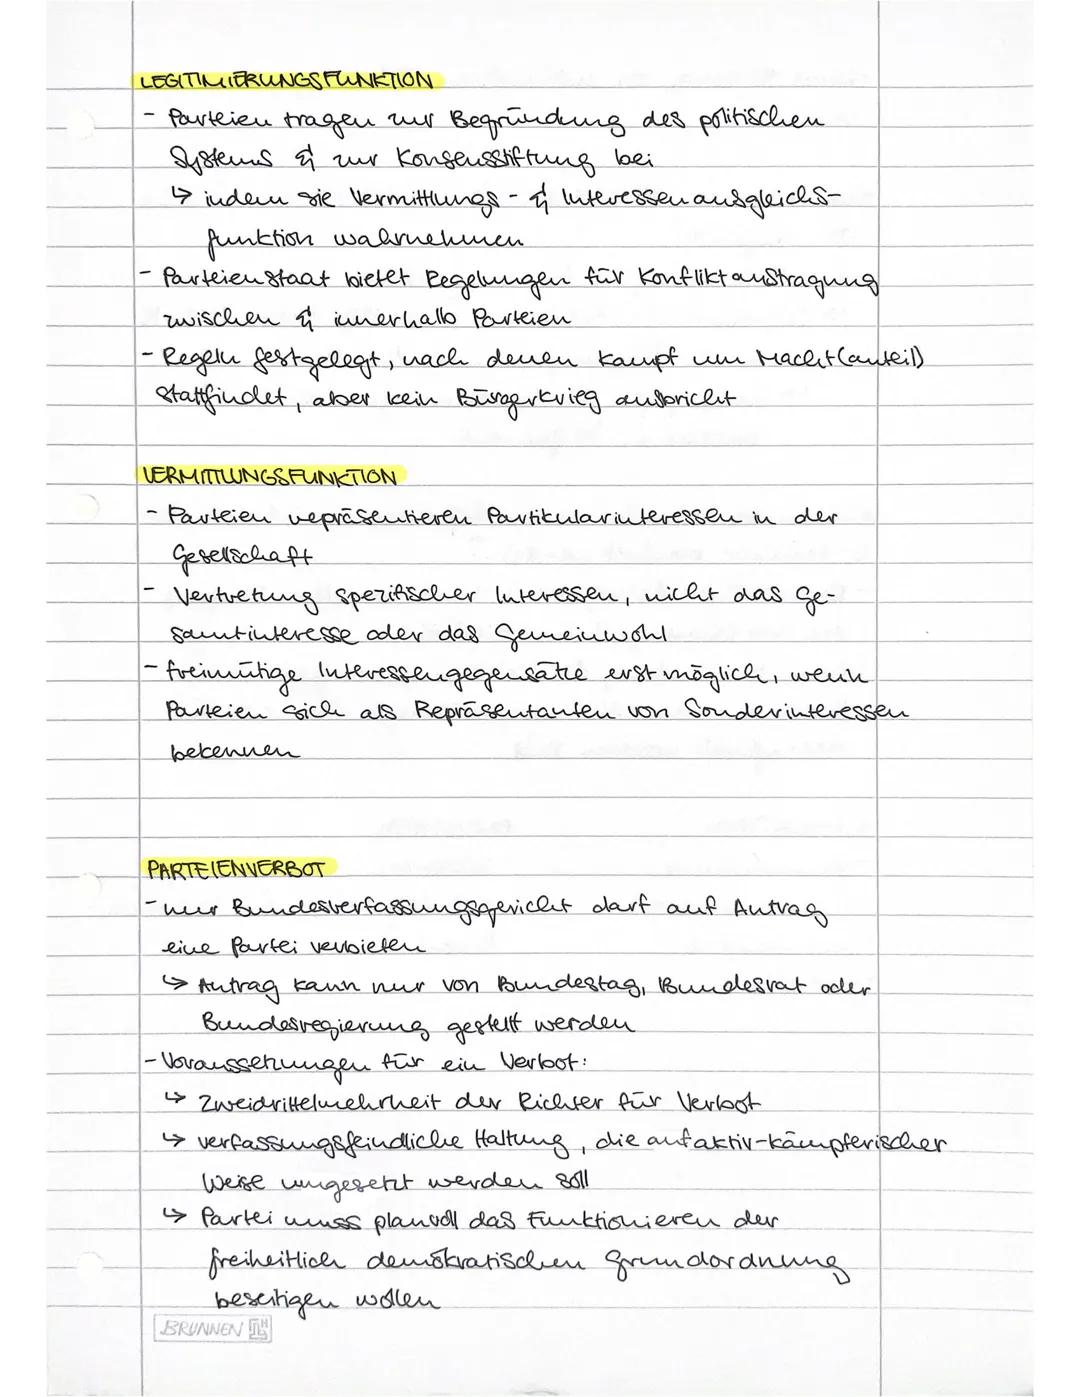 LEGITIMIERUNGSFUNKTION
- Parteien tragen zur Begründung des politischen
Systems & zur Konsensstiftung bei
↳ indem sie Vermittlungs- & Interessenausgleichs-
funktion wahrnehmen
- Parteienstaat bietet Regelungen für Konfliktaustragung
zwischen & innerhalb Parteien
- Regeln festgelegt, nach denen Kampf um Macht(anteil)
stattfindet, aber kein Bürgerkrieg ausbricht
VERMITTLUNGSFUNKTION
- Parteien repräsentieren Partikularinteressen in der
Gesellschaft
- Vertretung spezifischer Interessen, nicht das Ge-
samtinteresse oder das Gemeinwohl
- freimütige Interessengegensätze erst möglich, wenn
Parteien sich als Repräsentanten von Sonderinteressen
bekennen
PARTEIENVERBOT
- nur Bundesverfassungsgericht darf auf Antrag
eine Partei verbieten
↳ Antrag kann nur von Bundestag, Bundesrat oder
Bundesregierung gestellt werden
- Voraussetzungen für ein Verbot:
↳ Zweidrittelmehrheit der Richter für Verbot
↳ verfassungsfeindliche Haltung, die auf aktiv-kämpferischer
Weise umgesetzt werden soll
↳ Partei muss planvoll das Funktionieren der
freiheitlich demokratischen Grundordnung
beseitigen wollen
BRUNNEN